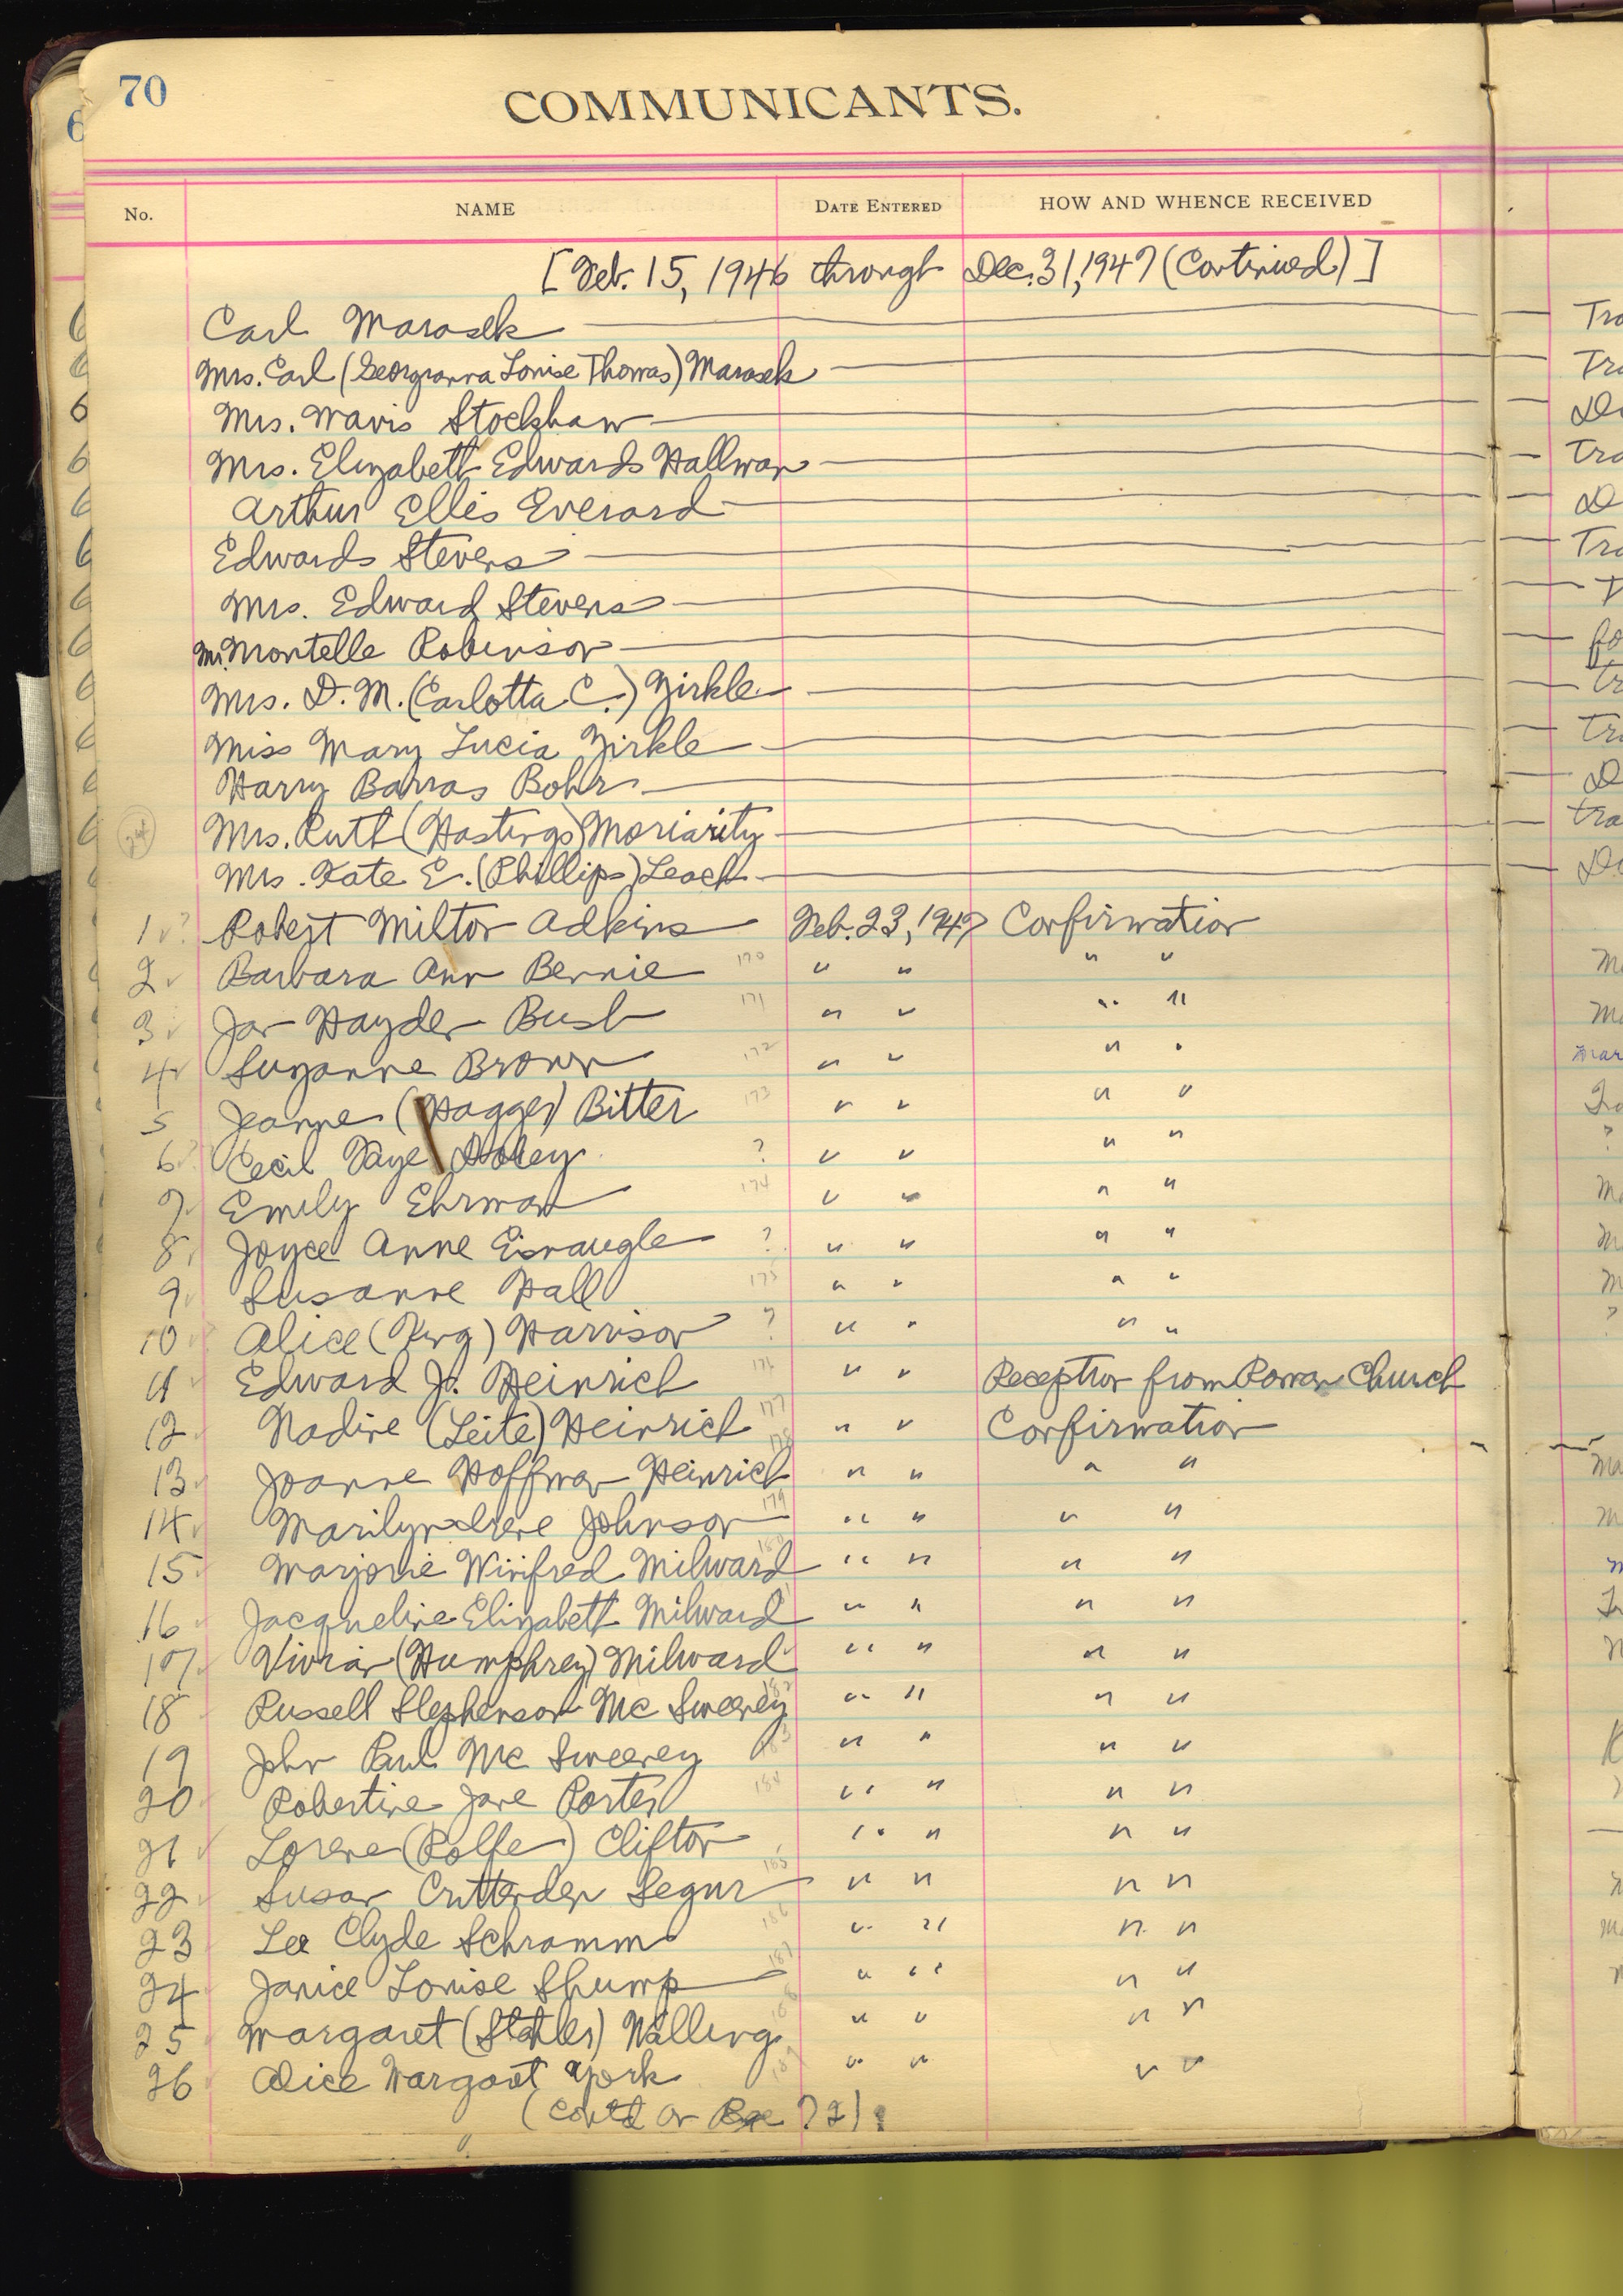 70
COMMUNICANTS.
No. NAME DATE ENTERED HOW AND WHENCE RECEIVED
[Feb. 15, 1946 through Dec. 31, 1947 (Continued)]
Carl Marasek Tra
Mrs. Carl (Georgianna Louise Thomas) Marasek Tra
Mrs. Mavis Stockshaw
Mrs. Elizabeth Edwards Hallman tra
Arthur Ellis Everard D
Edwards Stevens Tra
Mrs. Edward Stevens
Mr. Montelle Robinson
Mrs. D. M. (Carlotta C.) Zirkle tr
Miss Mary Lucia Zirkle tra
Harry Barras Bohr D
24 Mrs. Ruth (Hastings) Moriarity tra
Mrs. Kate E. (Phillips) Leach
1 ? Robert Milton Adkins Feb. 23, 1947 Confirmation
2 Barbara Ann Bernie 170 " " " "
3 Jan Hayden Bush 171 " " " "
4 Suzanne Brown 172 " " " "
5 Jeanne (Hagges) Bitter 173 " " " "
6 Cecil Faye ? " " " " ?
7 Emily Ehrman 174 " " " "
8 Joyce Anne Eisnaugle ? " " " "
9 Susanne Hall 175 " " " "
10 Alice (King) Harrison ? " " " " ?
11 Edward Jr. Heinrich 176 " " Reception from Roman Church
12 Nadine (Leite) Heinrich 177 " " Confirmation
13 Joanne Hoffman Heinrich 178 " " " "
14 Marilyn Irene Johnson 179 " " " "
15 Marjorie Winifred Milward 180 " " " "
16 Jacqueline Elizabeth Milward " " " "
17 Vivian (Humphrey) Milward " " " "
18 Russell Stephenson McSweeney 182 " " " "
19 John Paul McSweeney 183 " " " "
20 Robertine Jane Porter 184 " " " "
21 Lorene (Rolfe) Clifton " " " "
22 Susan Crittenden Segur 185 " " " "
23 Lee Clyde Schramm 186 " " " "
24 Janice Louise Shump 187 " " " "
25 Margaret (Stahler) Walling 188 " " " "
26 Alice Margaret York 189 " " " "
(Cont'd on Page 72)